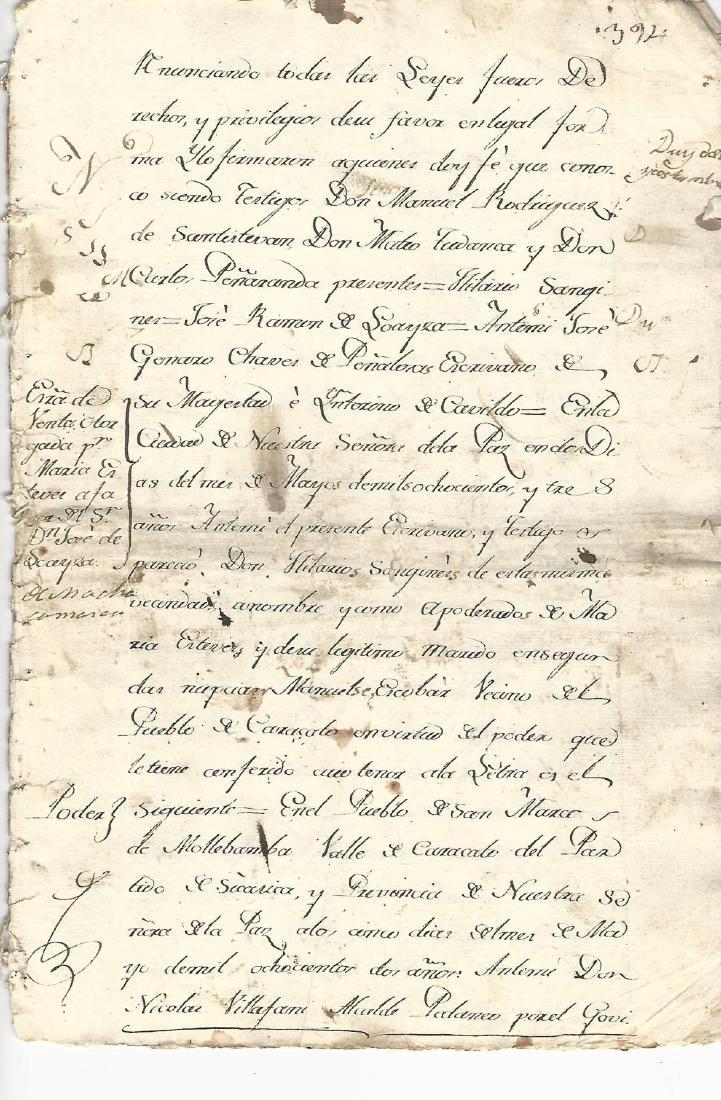 394
Anunciando todas las Leyes fueros De
rechos, y privilegios desu favor enlegal for
ma Ylo firmaron aquienes doy fè que conos
co siendo Testigos Don Manuel Rodriguez
de Santistevan, Don Mateo Tudanca y Don
Carlos Peñaranda presentes = Hilario Sangi
nes = Josè Ramon de Loayza = Antemi Josè
Genaro Chaves de Peñalosa Escrivano de
Su Magestad è Ynterino de Cavildo = Enla
Ciudad de Nuestra Señora dela Paz endos Di
as del mes de Mayo demils ochocientos, y tres
años Antemi el presente Escrivano, y Testigos
pareció Don Hilario Sanginès de estas misma
vecindad, anombre y como Apoderados de Ma
ria Esteves, y desu legitimo Marido ensegun
das nupcias Manuel Escobar Vecino del
Pueblo de Caracato envirtud del poder que
letiene conferido cuio tenor ala Letra es el
Siguiente = Enel Pueblo de San Marcos
de Mollebamba Valle de Caracato del Par
tido de Sicasica, y Provincia de Nuestra Se
ñora dela Paz alos cinco dias delmes de Ma
yo demil ochocientos dos años: Antemi Don
Nicolas Villafani Alcalde Pedaneo porel Govi
Esra de
Venta otor
gada pr.
Maria Es
teves afa
vor del Sr
Dn Josè de
Loayza.
de Macha
camarca
Poder